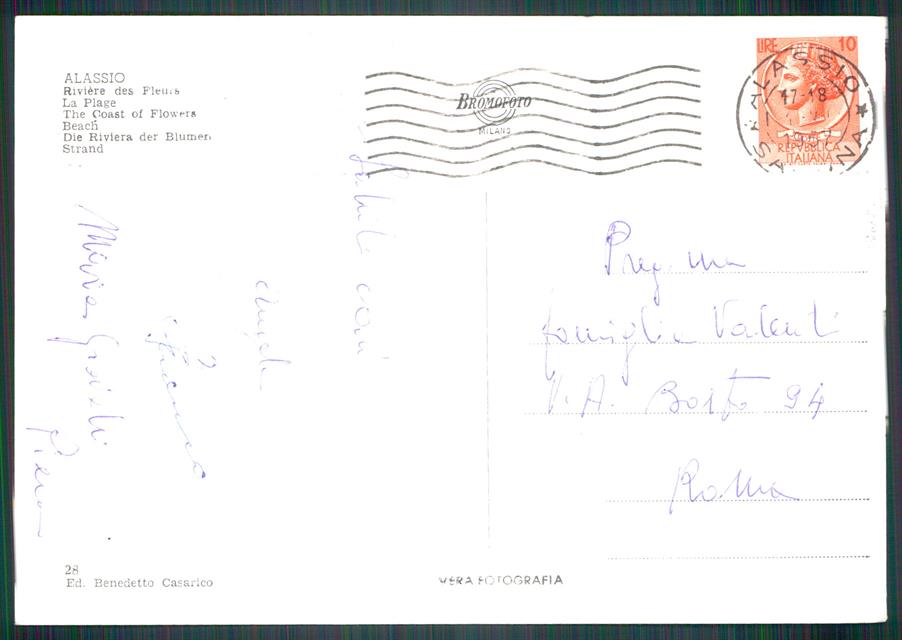 ALASSIO
Rivière des Fleurs
La Plage
The Coast of Flowers
Beach
Die Riviera der Blumen
Strand
BROMOFOTO
MILANO
LIRE 10
ALASSIO
17-18
REPVBBLICA
ITALIANA
Saluti cari
Angela
Franca
Piera
Preg.ma
famiglia Valenti
V. A. Bosio 94
Roma
28
Ed. Benedetto Casarico
VERA FOTOGRAFIA